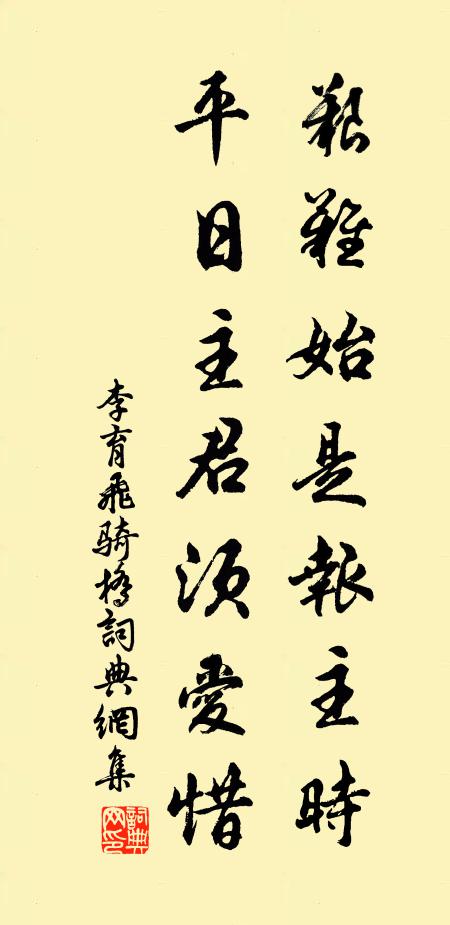 艱難始是報主時
平日主君須愛惜
李育飛騎橋詞典網集
詞典網印